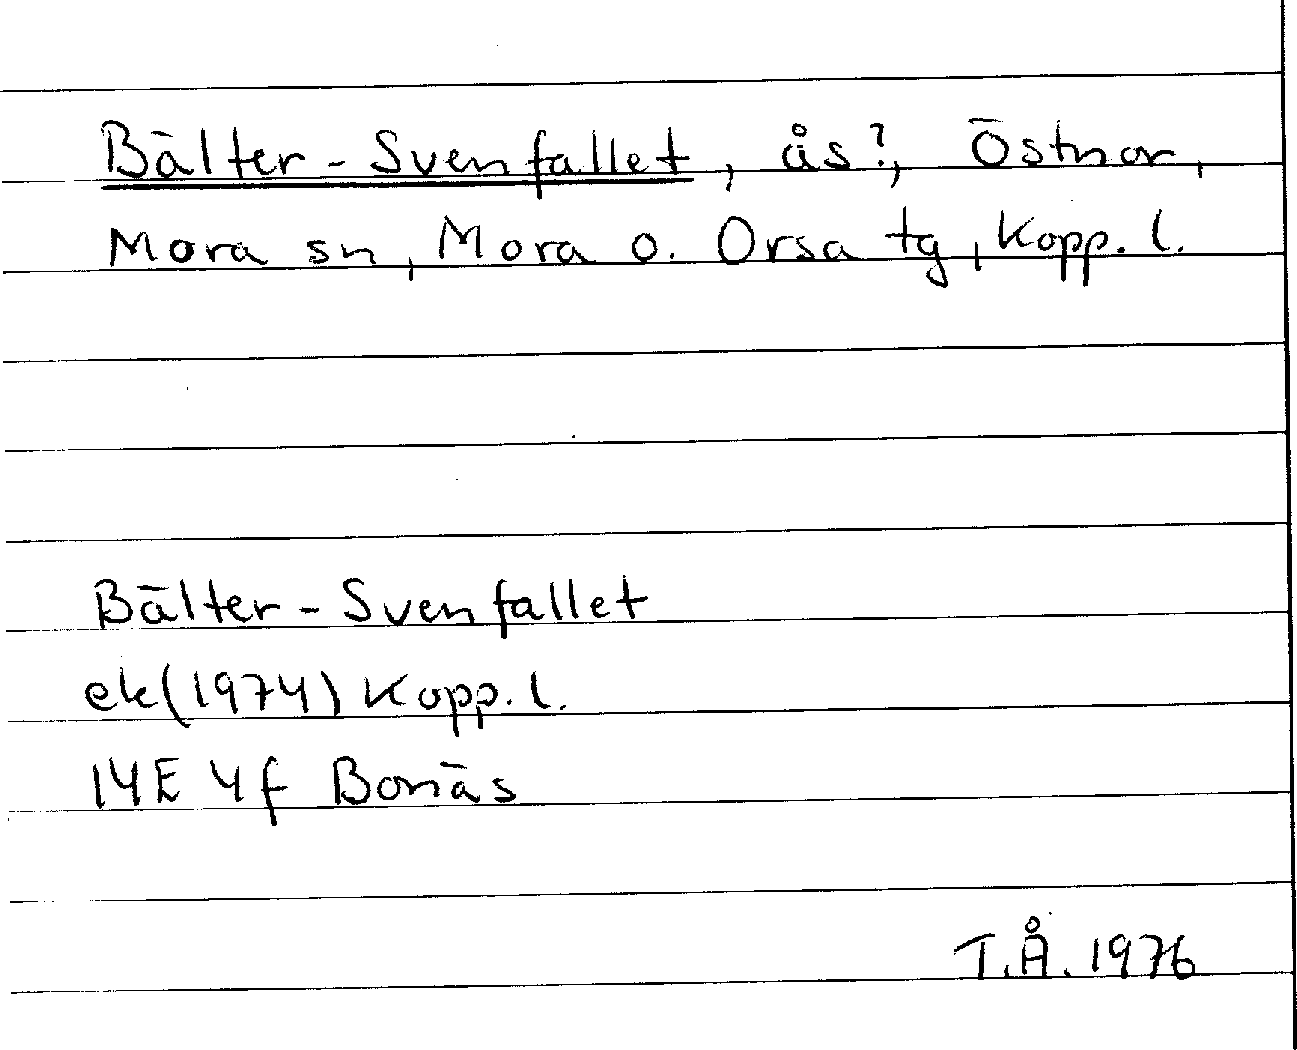 Bälter-Svenfallet, ås?, Östnor,
Mora sn, Mora o. Orsa tg, Kopp. l.
Bälter-Svenfallet
ek (1974) Kopp. l.
14E 4f Bonäs
T.Å. 1976